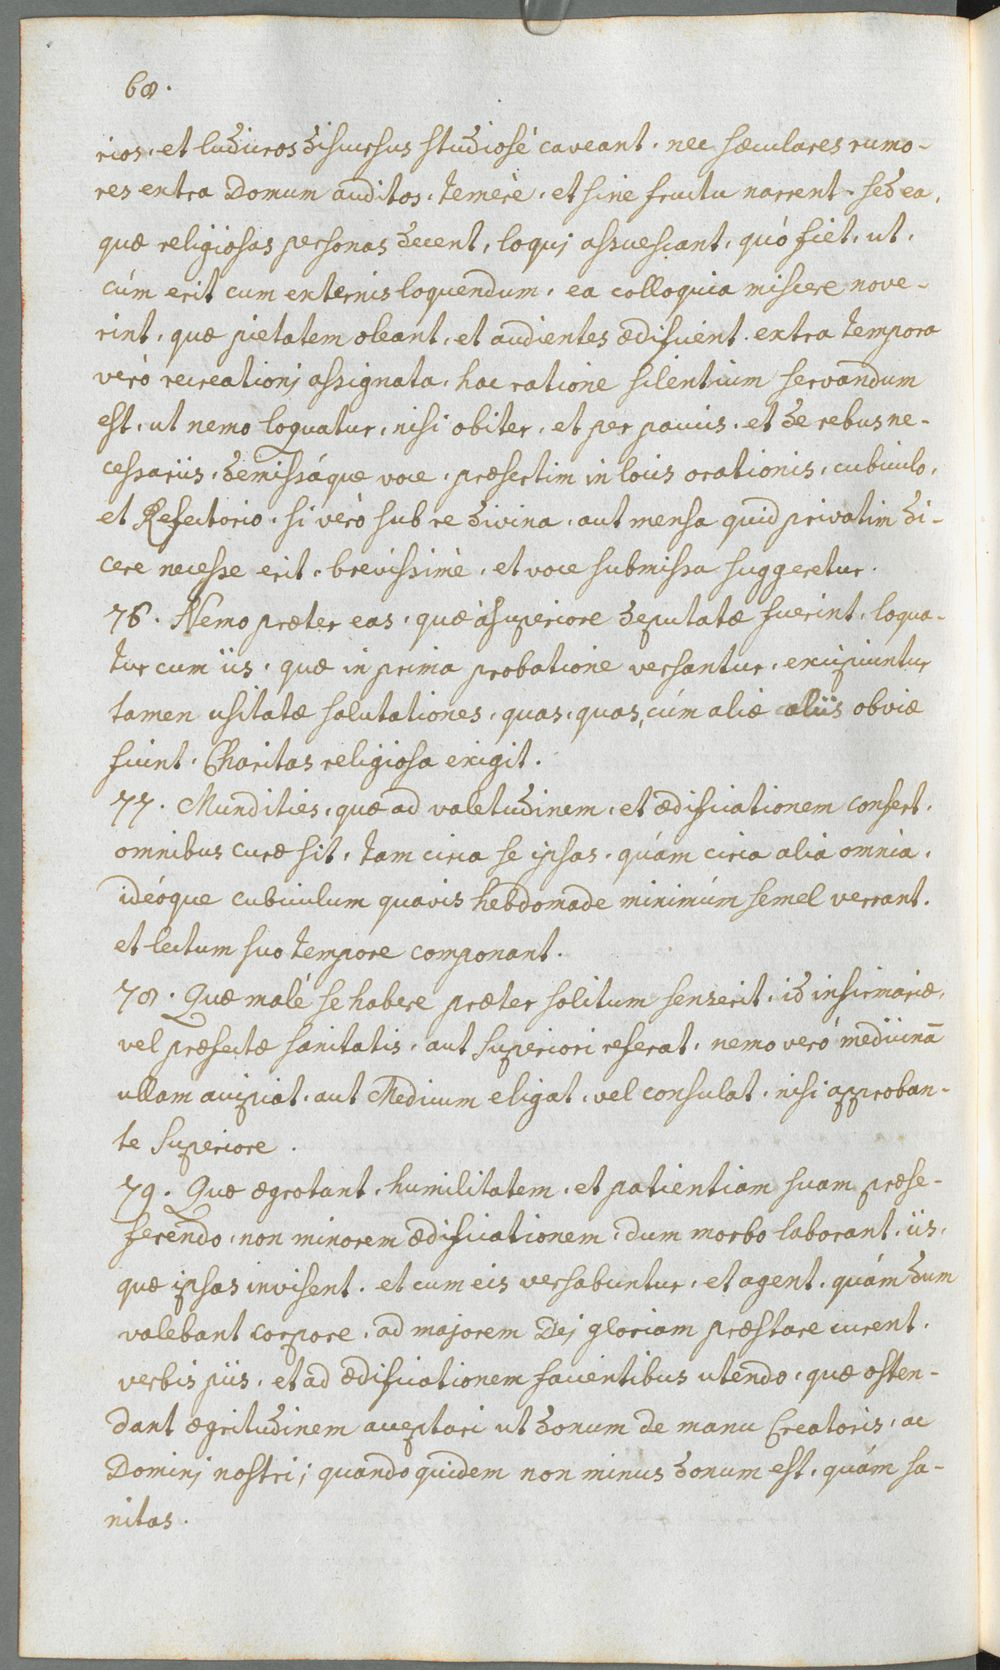 68.
rios, et ludicros discursus studiosè caveant, nec sæculares rumo-
res extra Domum auditos, temerè, et sine fructu narrent, sed ea,
quæ religiosas personas decent, loquj assuescant, quò fiet, ut,
cúm erit cum externis loquendum, ea colloquia miscere nove-
rint, quæ pietatem oleant, et audientes ædificent. extra tempora
verò recreationj assignata, hac ratione silentium servandum
est, ut nemo loquatur, nisi obiter, et per paucis, et de rebus ne-
cessariis, demissáque voce, præsertim in locis orationis, cubiculo,
et Refectorio, si verò sub re divina, aut mensa quid privatim di-
cere necesse erit, brevissimè, et voce submissa suggeretur.
76. Nemo præter eas, quæ à Superiore deputatæ fuerint, loqua-
tur cum iis, quæ in prima probatione versantur, excipiuntur
tamen usitatæ salutationes, quas, quas, cúm aliæ aliis obviæ
fiunt, Charitas religiosa exigit.
77. Mundities, quæ ad valetudinem, et ædificationem confert,
omnibus curæ sit, tam circa se ipsas, quám circa alia omnia,
idéoque cubiculum quavis hebdomade minimúm semel verrant,
et lectum suo tempore componant.
78. Quæ malé se habere præter solitum senserit, id infirmariæ,
vel præfectæ sanitatis, aut Superiori referat, nemo veró medicinā
ullam accipiat, aut Medicum eligat, vel consulat, nisi approban-
te Superiore.
79. Quæ ægrotant, humilitatem, et patientiam suam præse-
ferendo, non minorem ædificationem, dum morbo laborant, iis,
quæ ipsas invisent, et cum eis versabuntur, et agent, quám dum
valebant corpore, ad majorem Dej gloriam præstare curent,
verbis piis, et ad ædificationem facientibus utendo, quæ osten-
dant ægritudinem acceptari ut donum de manu Creatoris, ac
Dominj nostri; quandoquidem non minus donum est, quám sa-
nitas.